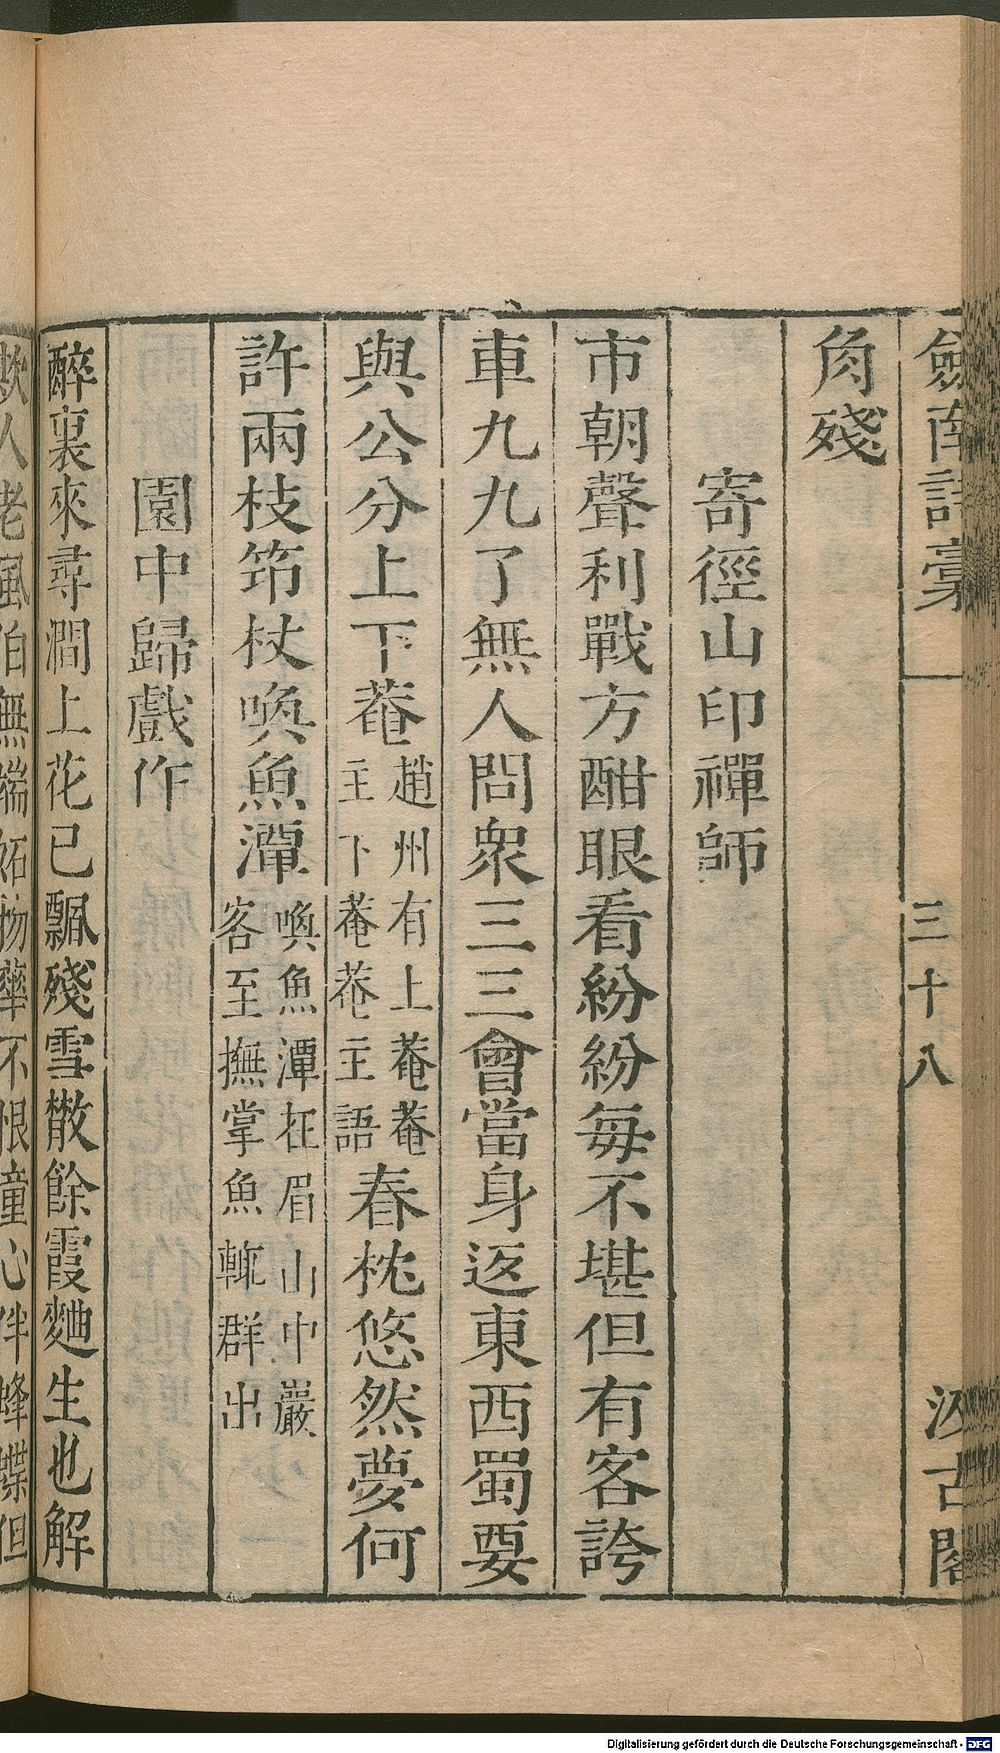 劒南詩稾 三十八 汲古閣
角殘
寄徑山印禪師
市朝聲利戰方酣眼看紛紛每不堪但有客誇
車九九了無人問衆三三會當身返東西蜀要
與公分上下菴趙州有上菴菴主下菴菴主語春枕悠然夢何
許兩枝笻杖喚魚潭喚魚潭在眉山中巖客至撫掌魚輒群出
園中歸戲作
醉裏來尋澗上花已飄殘雪散餘霞麯生也解
欺人老風伯無端妬物華不恨童心伴蜂蝶但
Digitalisierung gefördert durch die Deutsche Forschungsgemeinschaft - DFG